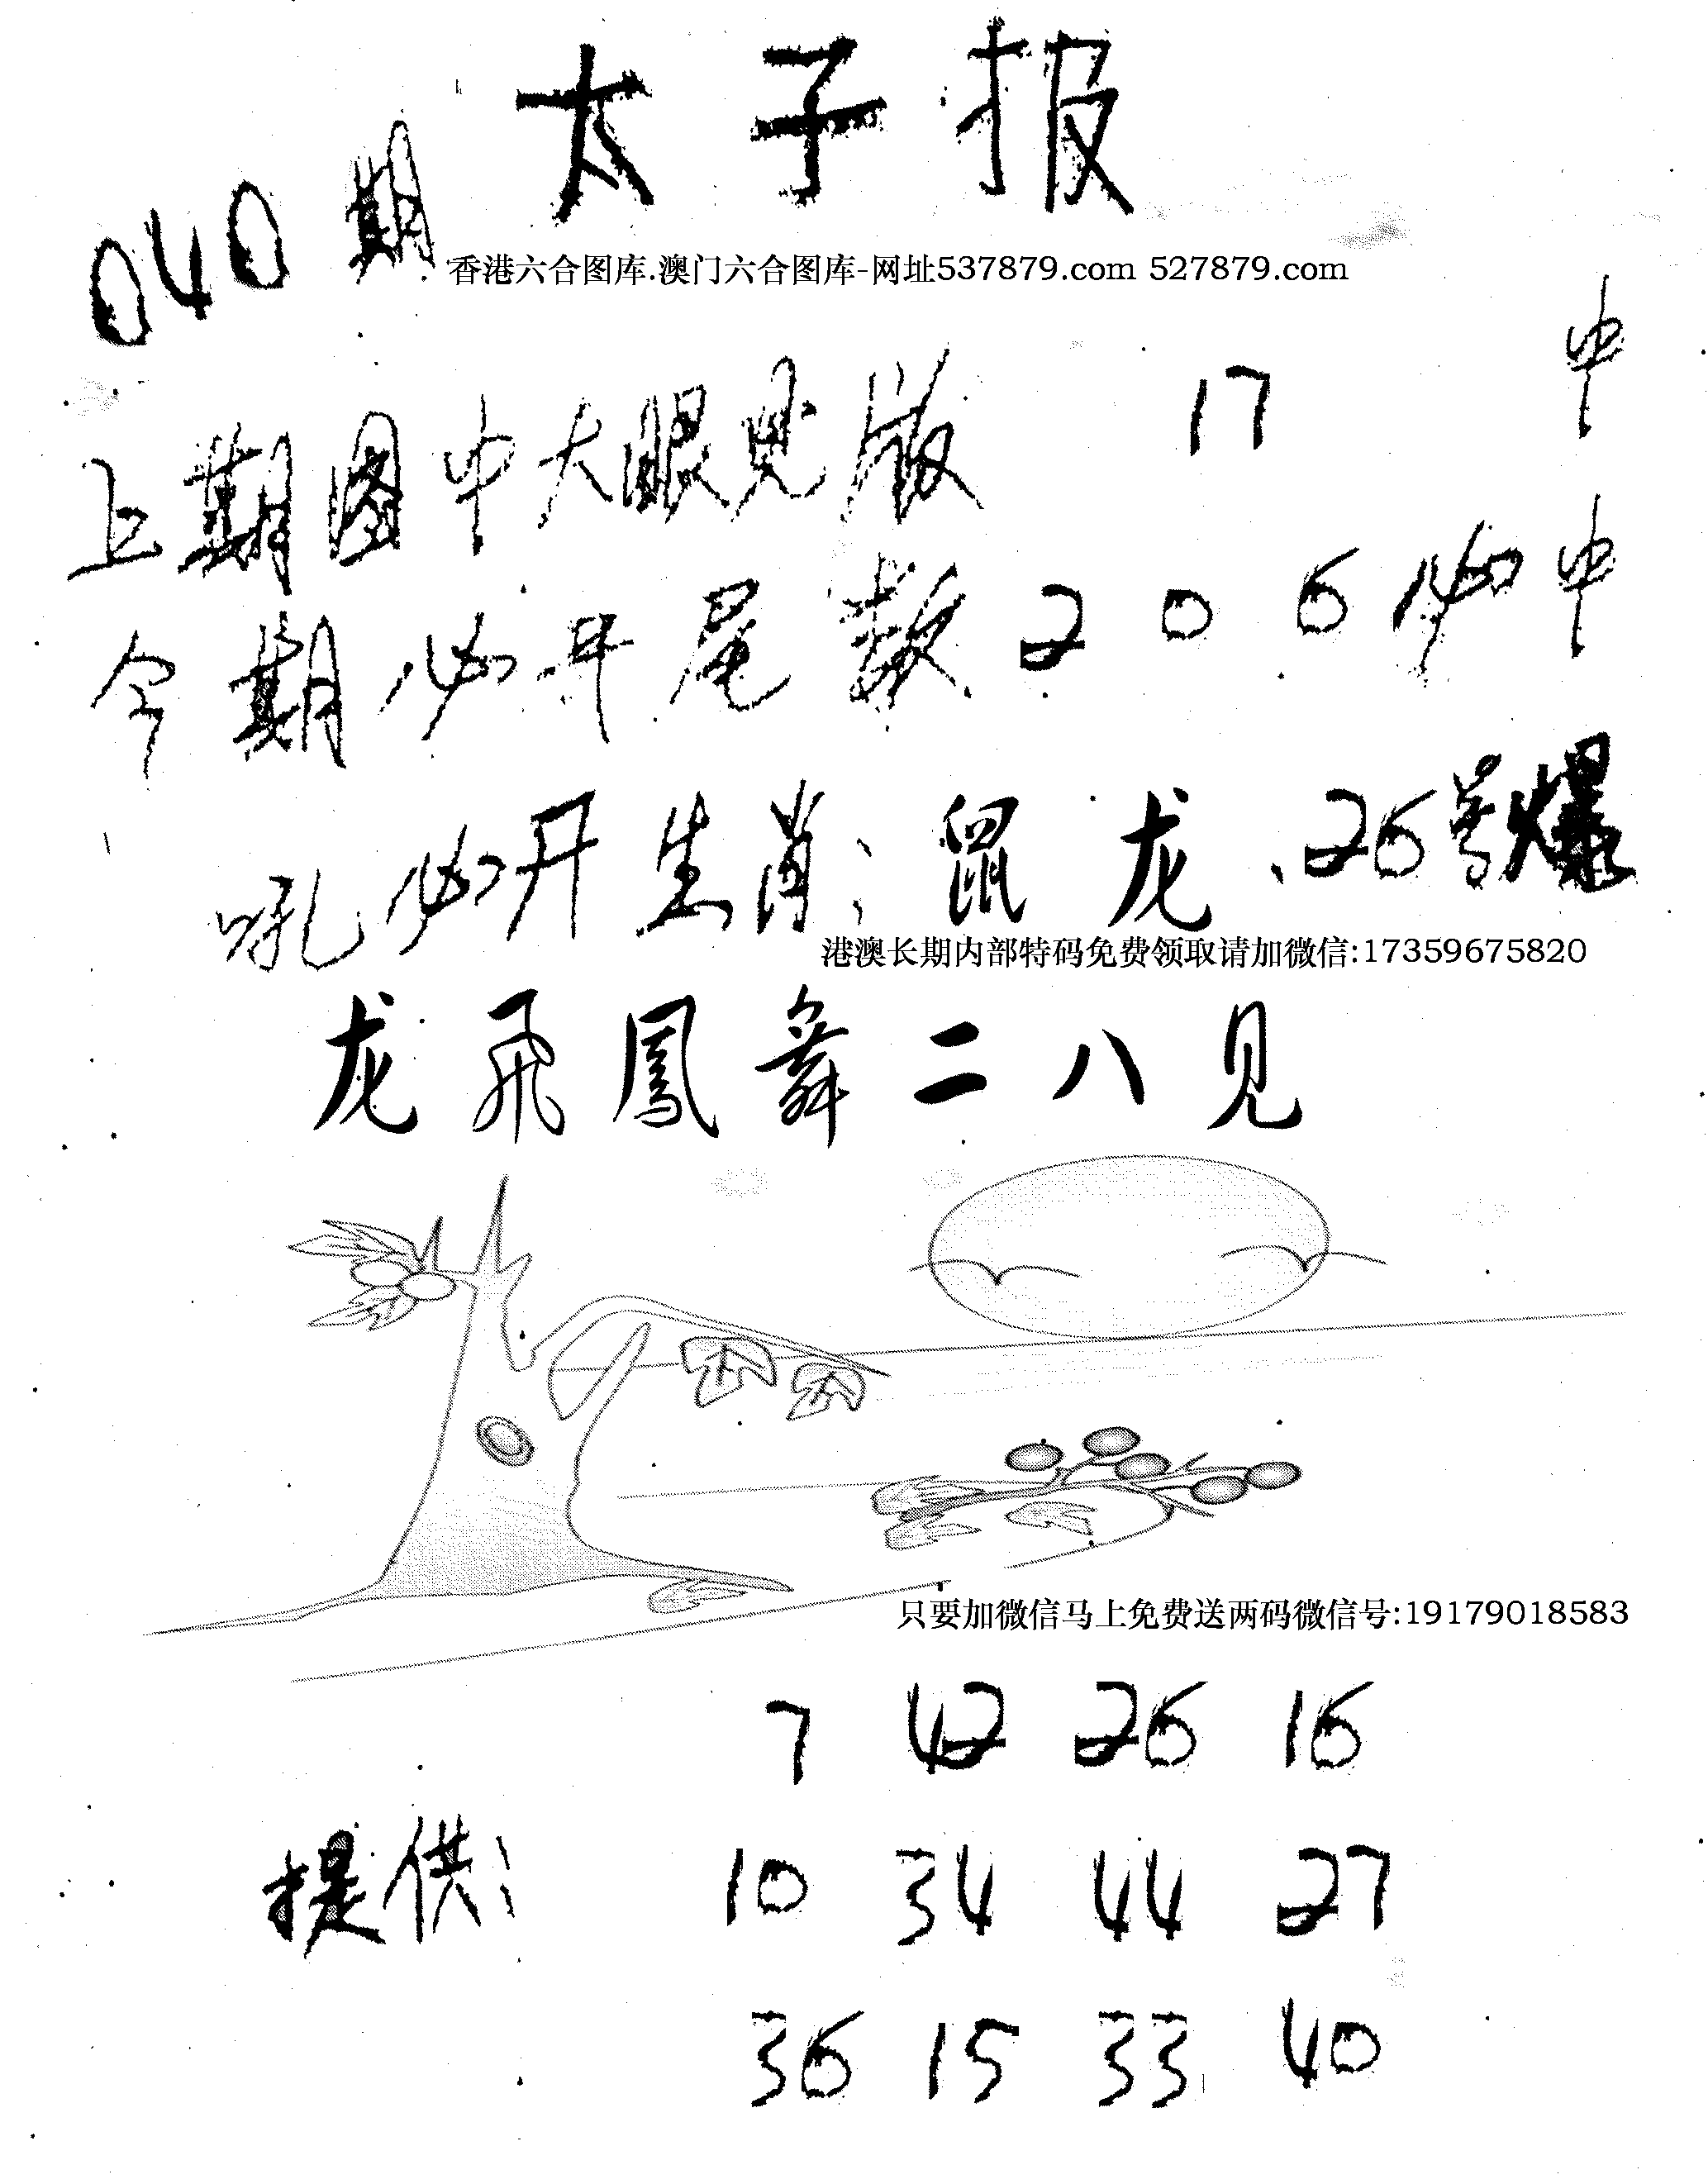 太子报
040期
香港六合图库.澳门六合图库-网址537879.com 527879.com
上期图中大眼见版 17 中
今期必开尾数 2 0 6 必中
吼必开生肖: 鼠 龙、26号爆
港澳长期内部特码免费领取请加微信:17359675820
龙飛鳳舞二八见
只要加微信马上免费送两码微信号:19179018583
7 42 26 16
提供: 10 34 44 27
36 15 33 40